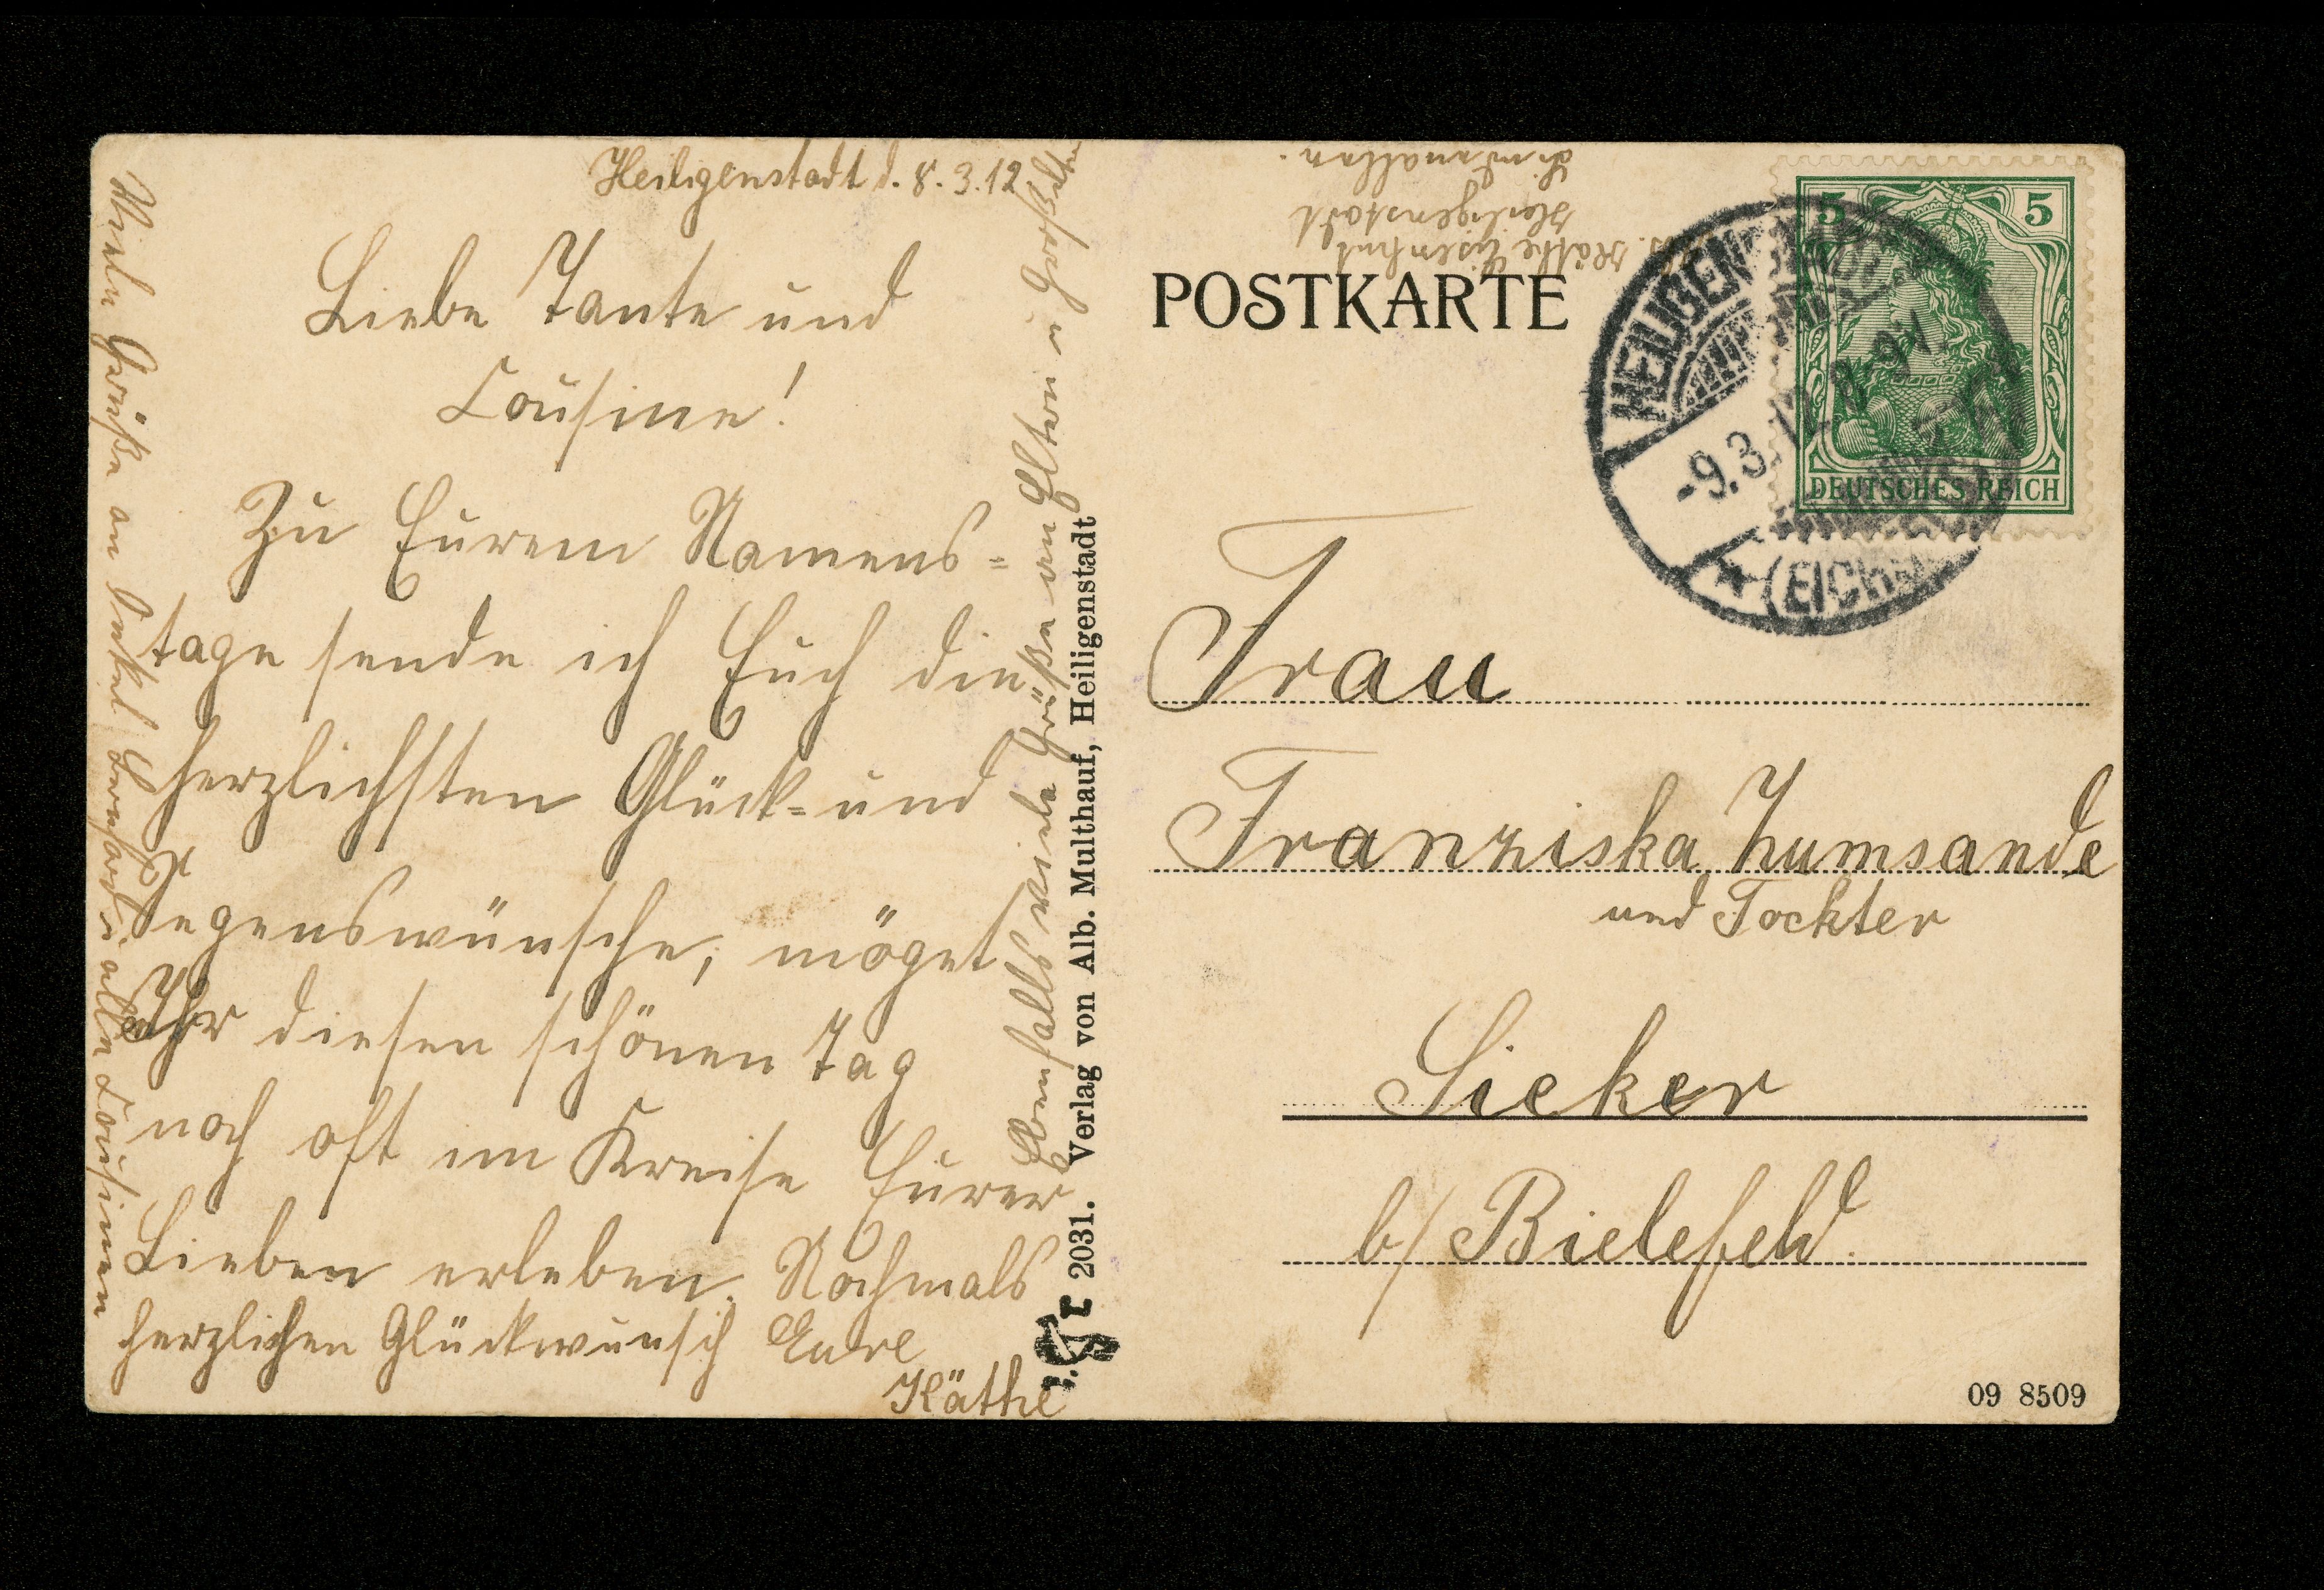 Heiligenstadt d. 8.3.12
Liebe Tante und
Cousine!
Zu Eurem Namens=
tage sende ich Euch die
herzlichsten Glück= und
Segenswünsche, möget
Ihr diesen schönen Tag
noch oft im Kreise Eurer
Lieben erleben. Nochmals
herzlichen Glückwunsch Eure
Käthe
Viele Grüße an Onkel Bernhard u alle Cousinen
Ebenfalls viele Grüße an Eltern u Großeltern
2031. Verlag von Alb. Multhauf, Heiligenstadt
Abs. Käthe Eisenhut
Heiligenstadt
Lindenallee.
POSTKARTE
5 5
DEUTSCHES REICH
HEILIGENSTADT
-9.3.12. 8-9V.
* (EICHSF
Frau
Franziska Zumsande
und Tochter
Sieker
b/ Bielefeld.
09 8509